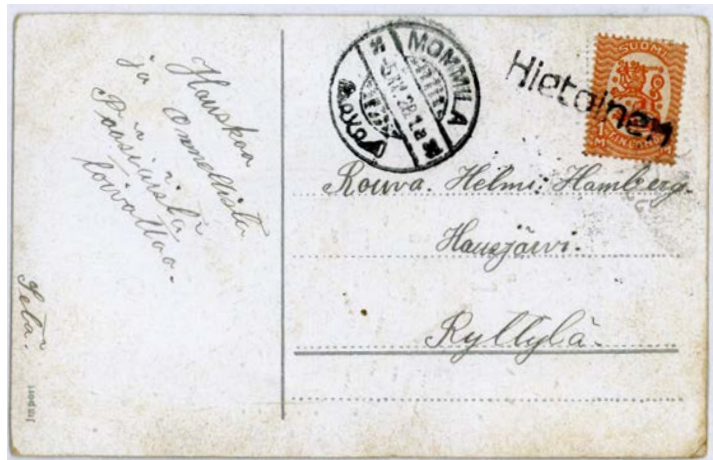 Hauskaa
ja onnellista
Pääsiäistä
toivottaa.
Setä.
Import
MOMMILA
5.IV.28.
Hietoinen
SUOMI
1 M
FINLAND
Rouva. Helmi. Hamberg.
Hausjärvi.
Ryttylä.